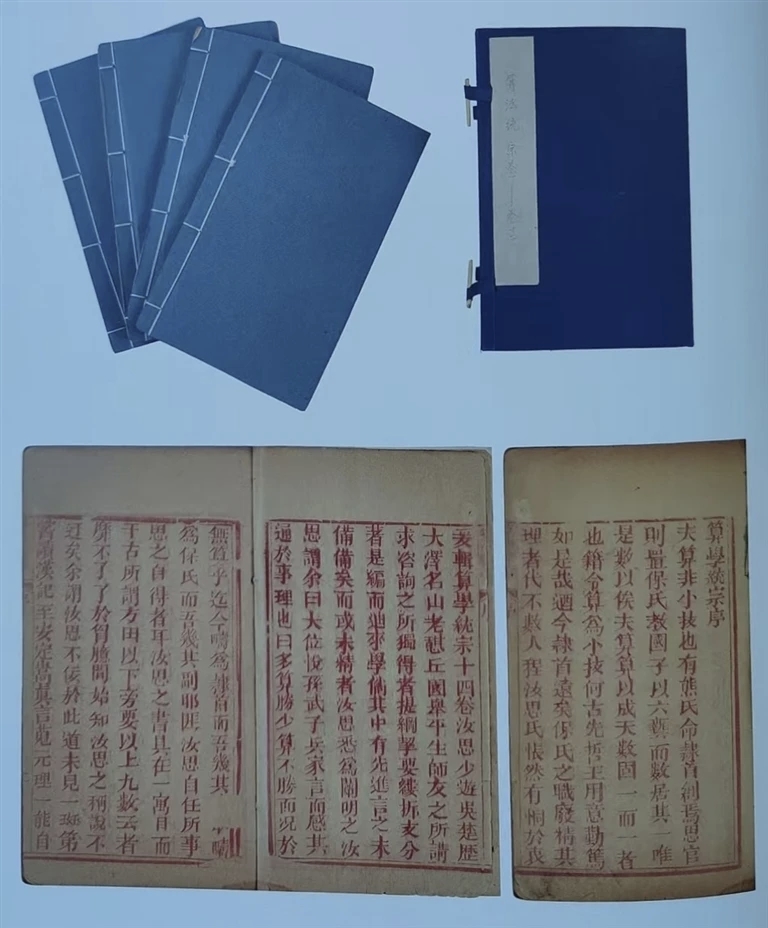 算法统宗卷一
算學統宗序
夫算非小技也有熊氏命隸首創焉思官
則量保氏教國子以六藝而數居其一唯
是數以俟夫算算以成天數固一而一者
也籍令算為小技何古先哲王用意勤篤
如是哉迺今隸首遠矣保氏之職廢精其
理者代不數人程汝思氏悵然有惻於衷
爰輯算學統宗十四卷汝思少遊吳楚歷
大澤名山老憩丘園舉平生師友之所請
求咨詢之所獨得者提綱挈要縷折支分
著是編而迪來學倘其中有先進言之未
備備矣而或未精者汝思悉為闡明之汝
思謂余曰大位悅孫武子兵家言而感其
通於事理也曰多算勝少算不勝而況於
無算乎迄今疇為隸首而吾幾其 疇
為保氏而吾幾其副耶匪汝思自任所事
思之自得者耳汝思之書具在一寓目而
千古所謂方田以下旁要以上九數云者
不了了於胸臆間始知汝思之稱說不
迂矣余謂汝思不佞於此道未見一斑第
嘗讀漢記至安定嵩真言元理一能自